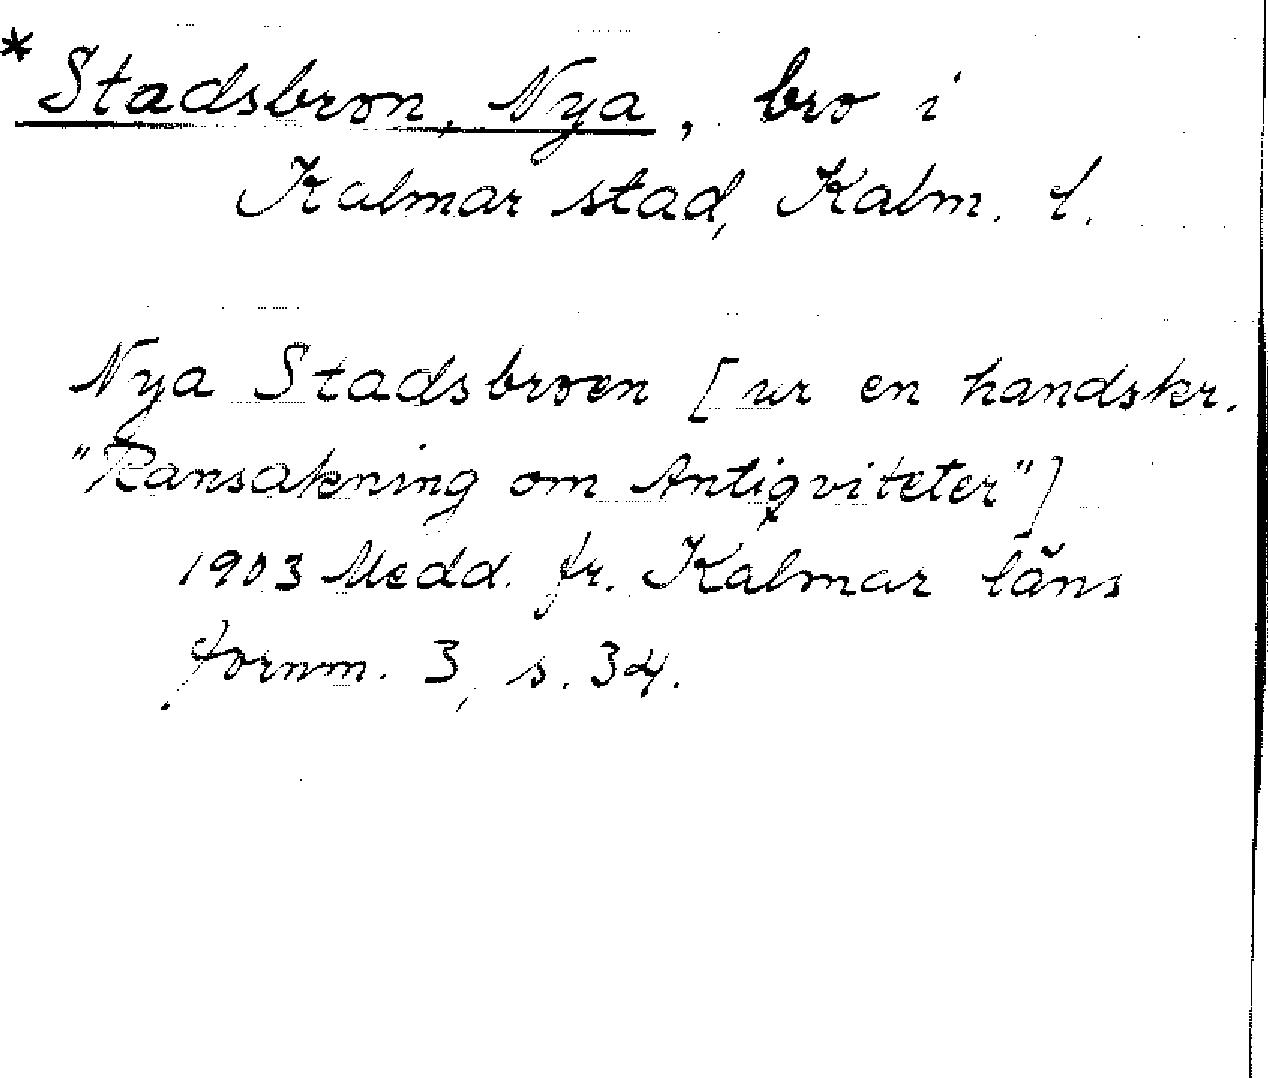 * Stadsbron, Nya, bro i
Kalmar stad, Kalm. l.
Nya Stadsbroen [ur en handskr.
"Ransakning om Antiqviteter"]
1903 Medd. fr. Kalmar läns
fornm. 3, s. 34.